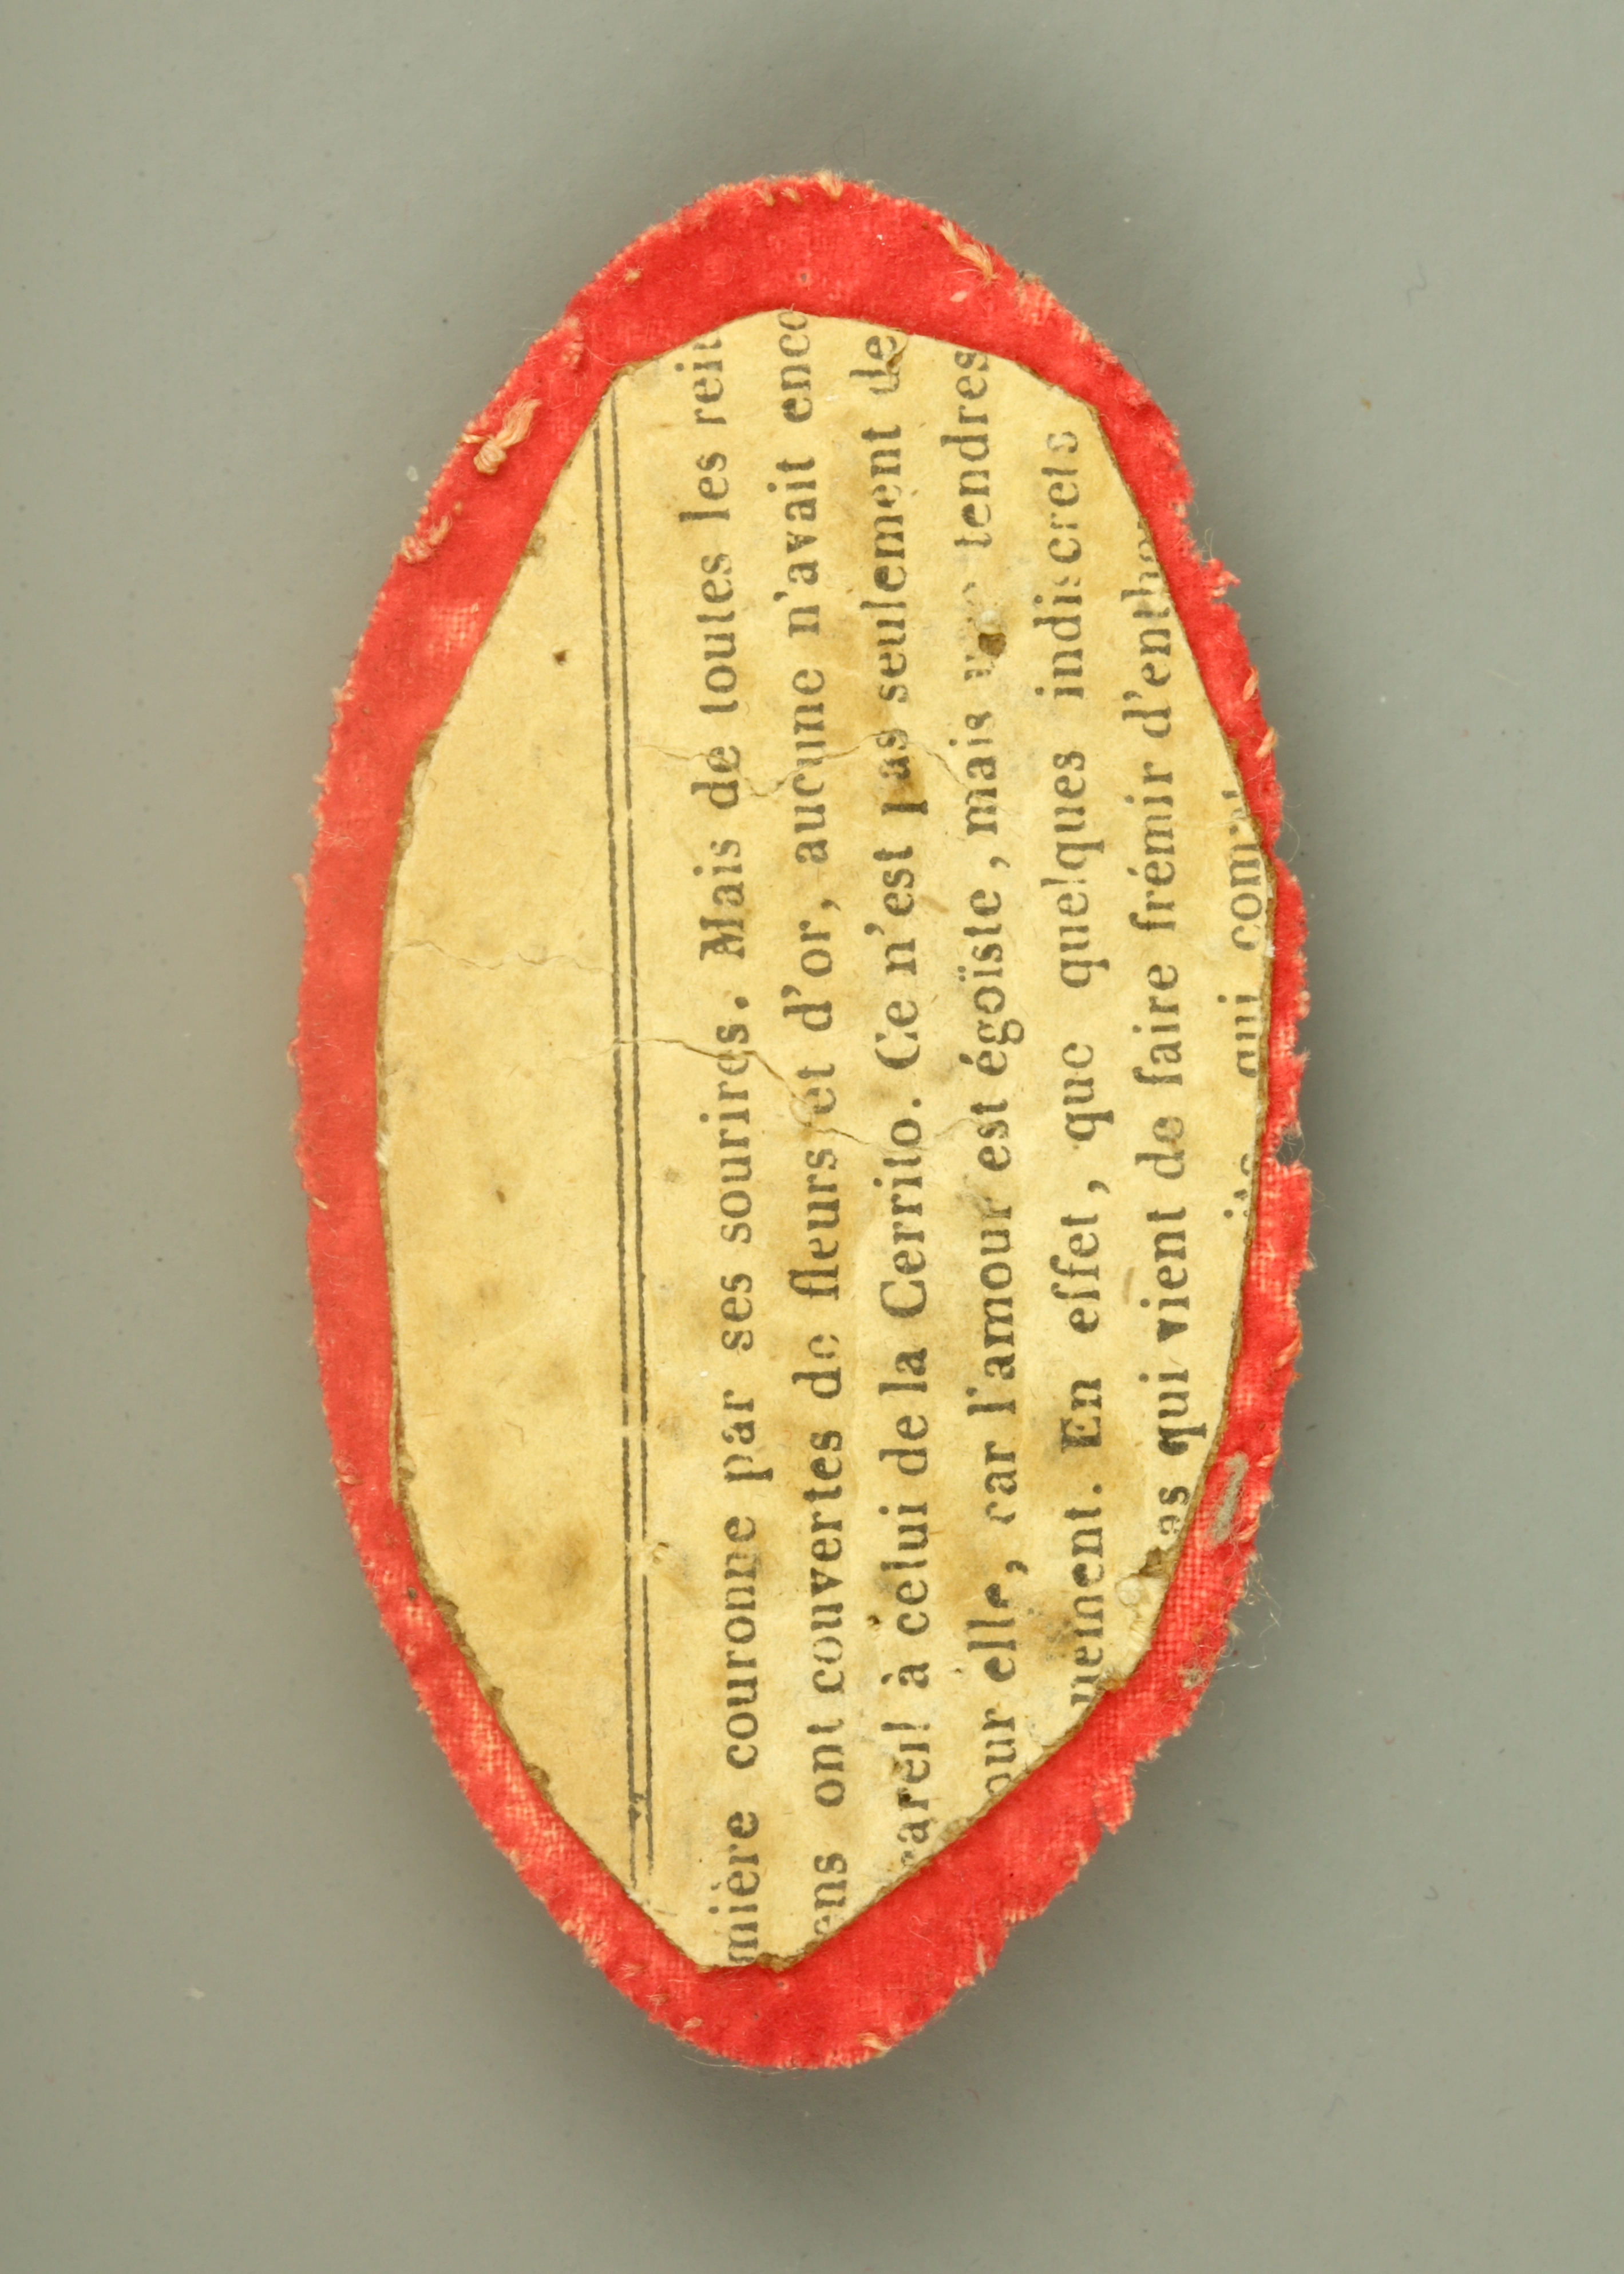 mière couronne par ses sourires. Mais de toutes les rein
ens ont couvertes de fleurs et d'or, aucune n'avait enco
areil à celui de la Cerrito. Ce n'est pas seulement de
our elle, car l'amour est égoïste, mais une tendres
nement. En effet, que quelques indiscrets
as qui vient de faire frémir d'entho
qui